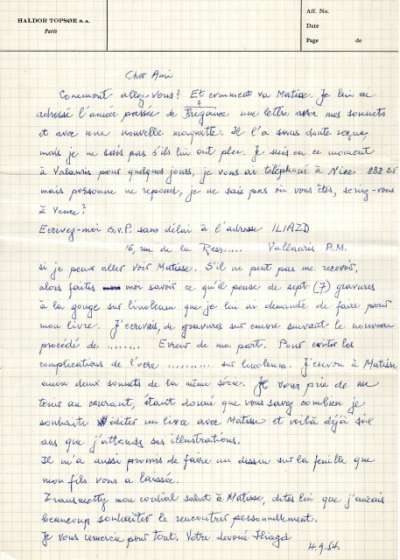 HALDOR TOPSØE s.a.
Paris
Aff. No.
Date
Page de
Cher Ami
Comment allez-vous? Et comment va Matisse. Je lui ai
adressé l'année passée de Bregance une lettre avec mes sonnets
et avec une nouvelle maquette. Il l'a sans doute reçue,
mais je ne sais pas s'ils lui ont plu. Je suis en ce moment
à Valauris pour quelques jours, je vous ai téléphoné à Nice 882 25
mais personne ne repond, je ne sais pas où vous êtes, seriez-vous
à Vence?
Ecrivez-moi S.V.P. sans délai à l'adresse ILIAZD
16, rue de la Ress..... Vallauris A.M.
si je peux aller voir Matisse. S'il ne peut pas me recevoir,
alors faites moi savoir ce qu'il pense de sept (7) gravures
à la gouge sur linoleum que je lui ai demandé de faire pour
mon livre. J'écrivais, de gravures sur cuivre suivant le nouveau
procédé de ........ Erreur de ma part. Pour éviter les
complications de l' .......... sur linoleum. J'envoie à Matisse
encore deux sonnets de la même série. Je vous prie de me
tenir au courant, étant donné que vous savez combien je
souhaite éditer un livre avec Matisse et voilà déjà six
ans que j'attends ses illustrations.
Il m'a aussi promis de faire un dessin sur la feuille que
mon fils vous a laissée.
Transmettez mon cordial salut à Matisse, dites lui que j'aurais
beaucoup souhaiter le rencontrer personnellement.
Je vous remercie pour tout. Votre devoué Iliazd
4.9.54.